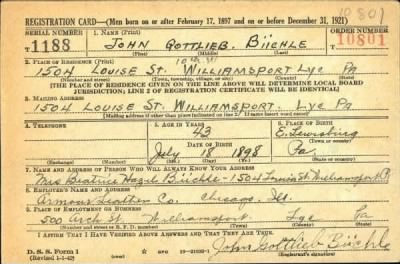 10801
REGISTRATION CARD—(Men born on or after February 17, 1897 and on or before December 31, 1921)
SERIAL NUMBER 1. NAME (Print) ORDER NUMBER
1188 JOHN GOTTLIEB. BÜCHLE 10801
2. PLACE OF RESIDENCE (Print)
1504 LOUISE ST. WILLIAMSPORT LYC PA
(Number and street) (Town, township, village, or city) (County) (State)
[THE PLACE OF RESIDENCE GIVEN ON THE LINE ABOVE WILL DETERMINE LOCAL BOARD
JURISDICTION; LINE 2 OF REGISTRATION CERTIFICATE WILL BE IDENTICAL]
3. MAILING ADDRESS
1504 LOUISE ST. WILLIAMSPORT. LYC PA.
[Mailing address if other than place indicated on line 2. If same insert word same]
4. TELEPHONE 5. AGE IN YEARS 6. PLACE OF BIRTH
43 E. Lewisburg
DATE OF BIRTH (Town or county)
July 18 1898 Pa.
(Exchange) (Number) (Mo.) (Day) (Yr.) (State or country)
7. NAME AND ADDRESS OF PERSON WHO WILL ALWAYS KNOW YOUR ADDRESS
Mrs Beatrice Hazel Büchle-1504 Louise St Williamsport P
8. EMPLOYER'S NAME AND ADDRESS
Armour Leather Co. Chicago, Ill.
9. PLACE OF EMPLOYMENT OR BUSINESS
500 Arch St. Williamsport Lyc Pa
(Number and street or R. F. D. number) (Town) (County) (State)
I AFFIRM THAT I HAVE VERIFIED ABOVE ANSWERS AND THAT THEY ARE TRUE.
D. S. S. Form 1 John Gottlieb Büchle
(Revised 1-1-42) (over) (Registrant's signature)